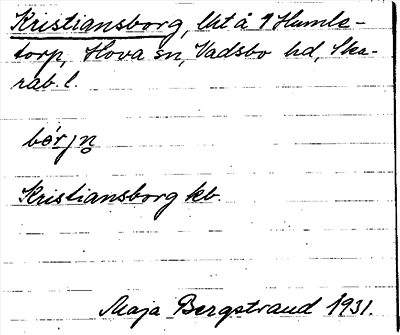 Kristiansborg, lht å 1 Humle-
torp, Hova sn, Vadsbo hd, Ska-
rab. l.
bórjn
Kristiansborg kb.
Maja Bergstrand 1931.